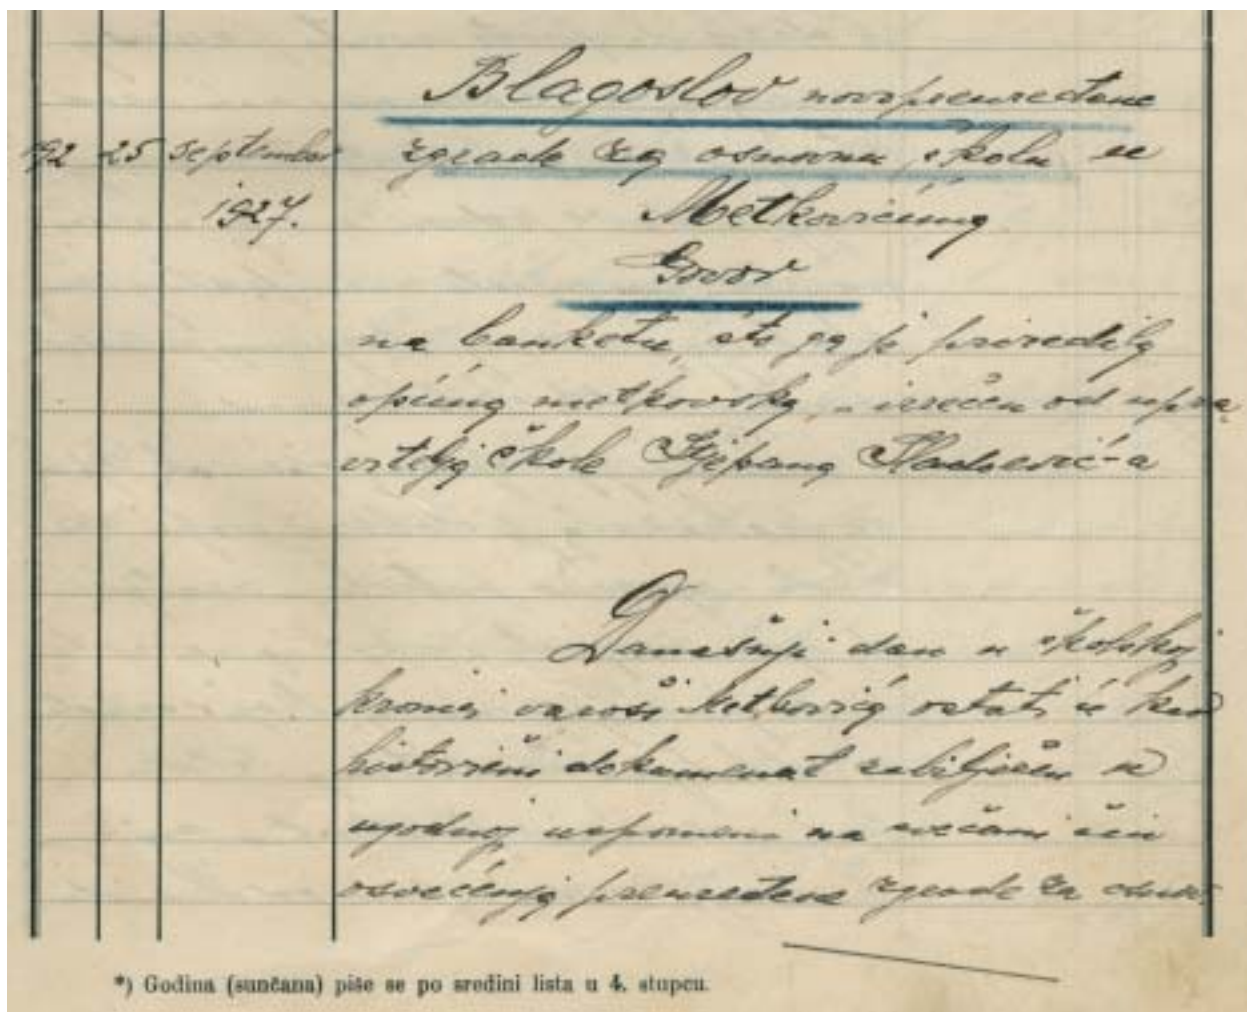 Blagoslov novopreuređene
192 25 septembar zgrade za osnovnu školu u
1927. Metkovićima
Govor
na banketu, što ga je priredila
općina metkovska, - izrečen od upra-
vitelja škole Stjepana
Današnji dan u školskoj
kronici varoši Metković ostati će kao
historični dokumenat zabilježen u
ugodnoj uspomeni na svečani čin
osvećenja preuređene zgrade za osnov-
*) Godina (sunčana) piše se po sredini lista u 4. stupcu.